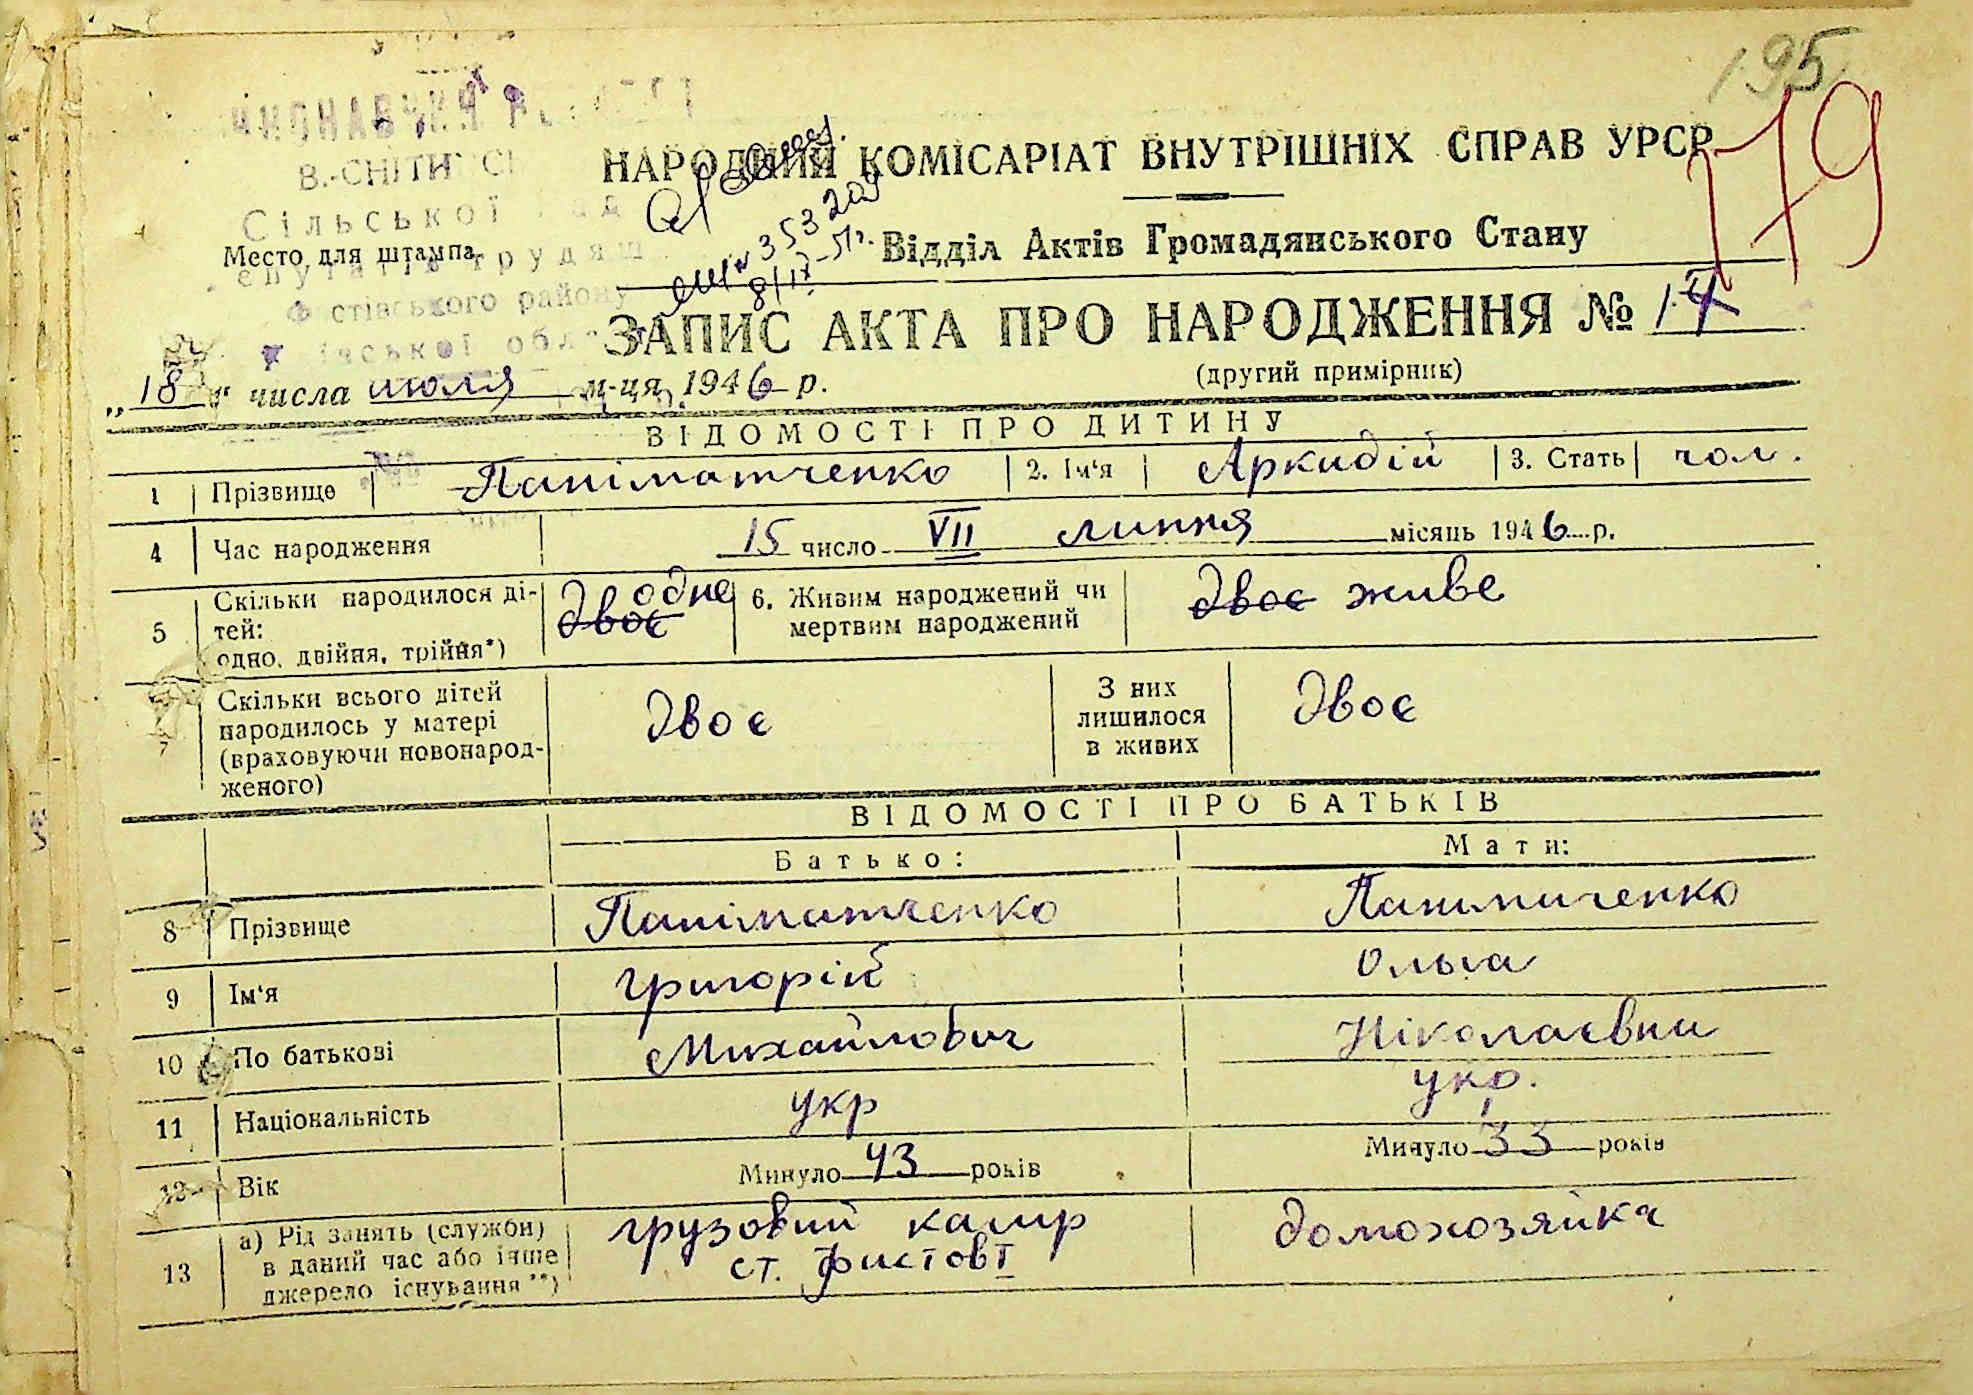 195
179
В.-СНІТИ
Сільської
Фастівського району
НАРОДНИЙ КОМІСАРІАТ ВНУТРІШНІХ СПРАВ УРСР
353209
Место для штампа
Відділ Актів Громадянського Стану
ЗАПИС АКТА ПРО НАРОДЖЕННЯ № 14
(другий примірник)
„18" числа июля м-ця 1946 р.
ВІДОМОСТІ ПРО ДИТИНУ
1 Прізвище Паніматченко 2. Ім'я Аркадій 3. Стать чол.
4 Час народження 15 число VII липня місяць 1946 р.
5 Скільки народилося ді-
тей:
одно, двійня, трійня*)
двоє одне
6. Живим народжений чи
мертвим народжений
двоє живе
7 Скільки всього дітей
народилось у матері
(враховуючи новонарод-
женого)
двоє
З них
лишилося
в живих
двоє
ВІДОМОСТІ ПРО БАТЬКІВ
Батько: Мати:
8 Прізвище Паніматченко Паниматченко
9 Ім'я Григорій Ольга
10 По батькові Михайлович Ніколаєвна
11 Національність укр укр.
12 Вік Минуло 43 років Минуло 33 років
13 а) Рід занять (служби)
в даний час або інше
джерело існування**)
грузовий касир
ст. Фастов I
домохозяйка